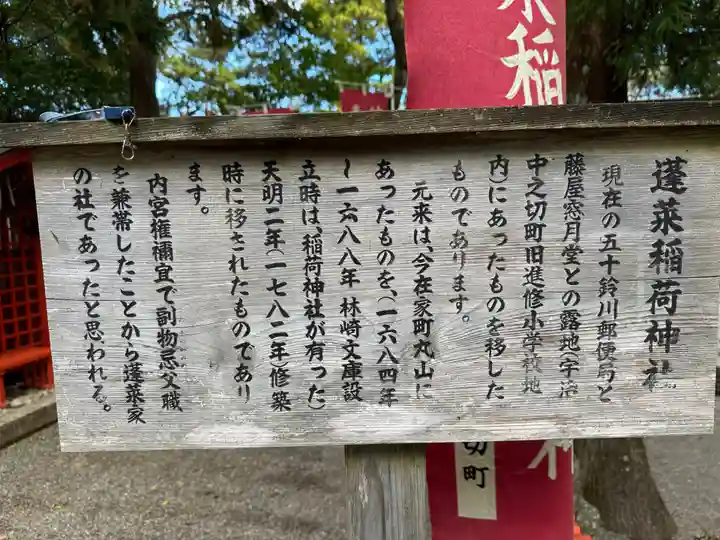 蓬萊稲荷神社
現在の五十鈴川郵便局と
藤屋窓月堂との露地(宇治
中之切町旧進修小学校地
内)にあったものを移した
ものであります。
元来は、今在家町丸山に
あったものを、(一六八四年
~一六八八年 林崎文庫設
立時は、稲荷神社が有った)
天明二年(一七八二年)修築
時に移されたものであり
ます。
内宮権禰宜で副物忌父職
を兼帯したことから蓬萊家
の社であったと思われる。
稲
切町